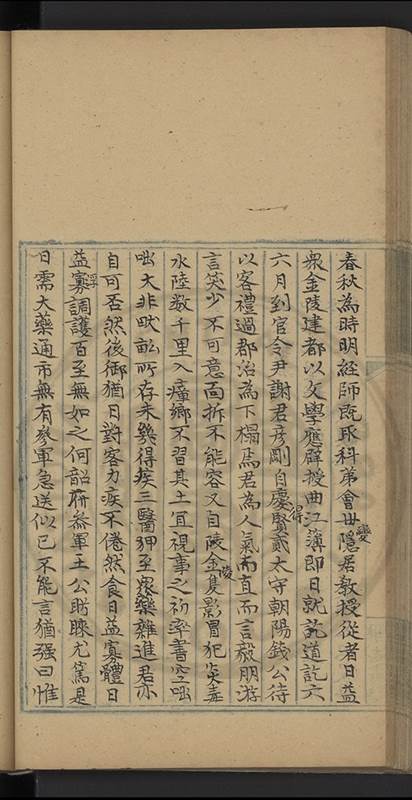 春秋為時明經師既取科第會世變隱居教授從者日益
衆金陵建都以文學應辟授曲江簿即日就訖道訖六
六月到官令尹謝君彦剛自慶得賢貳太守朝陽錢公待
以客禮過郡治為下榻焉君為人氣而直而言毅朋游
言笑少不可意面折不能容又自陵金陵夐影冒犯炎毒
水陸數千里入瘴鄉不習其土宜視事之初率書空咄
咄大非畎畝所存未幾得疾三醫狎至衆藥雜進君亦
自可否然後御猶日對客力疾不倦然食日益寡體日
益寡浮調護百至無如之何韶府叅軍王公時睞尤篤是
日需大藥通市無有參軍急送似已不能言猶强曰惟